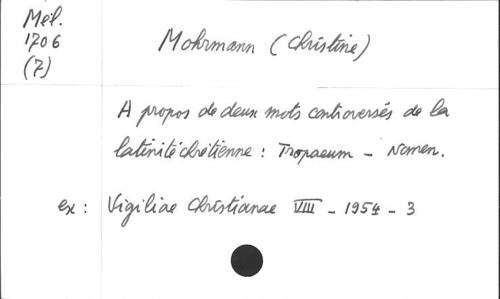 Mél.
1706
(7)
Mohrmann (Christine)
A propos de deux mots controversés de la
latinité chrétienne : Tropaeum - Nomen.
ex : Vigiliae Christianae VIII - 1954 - 3